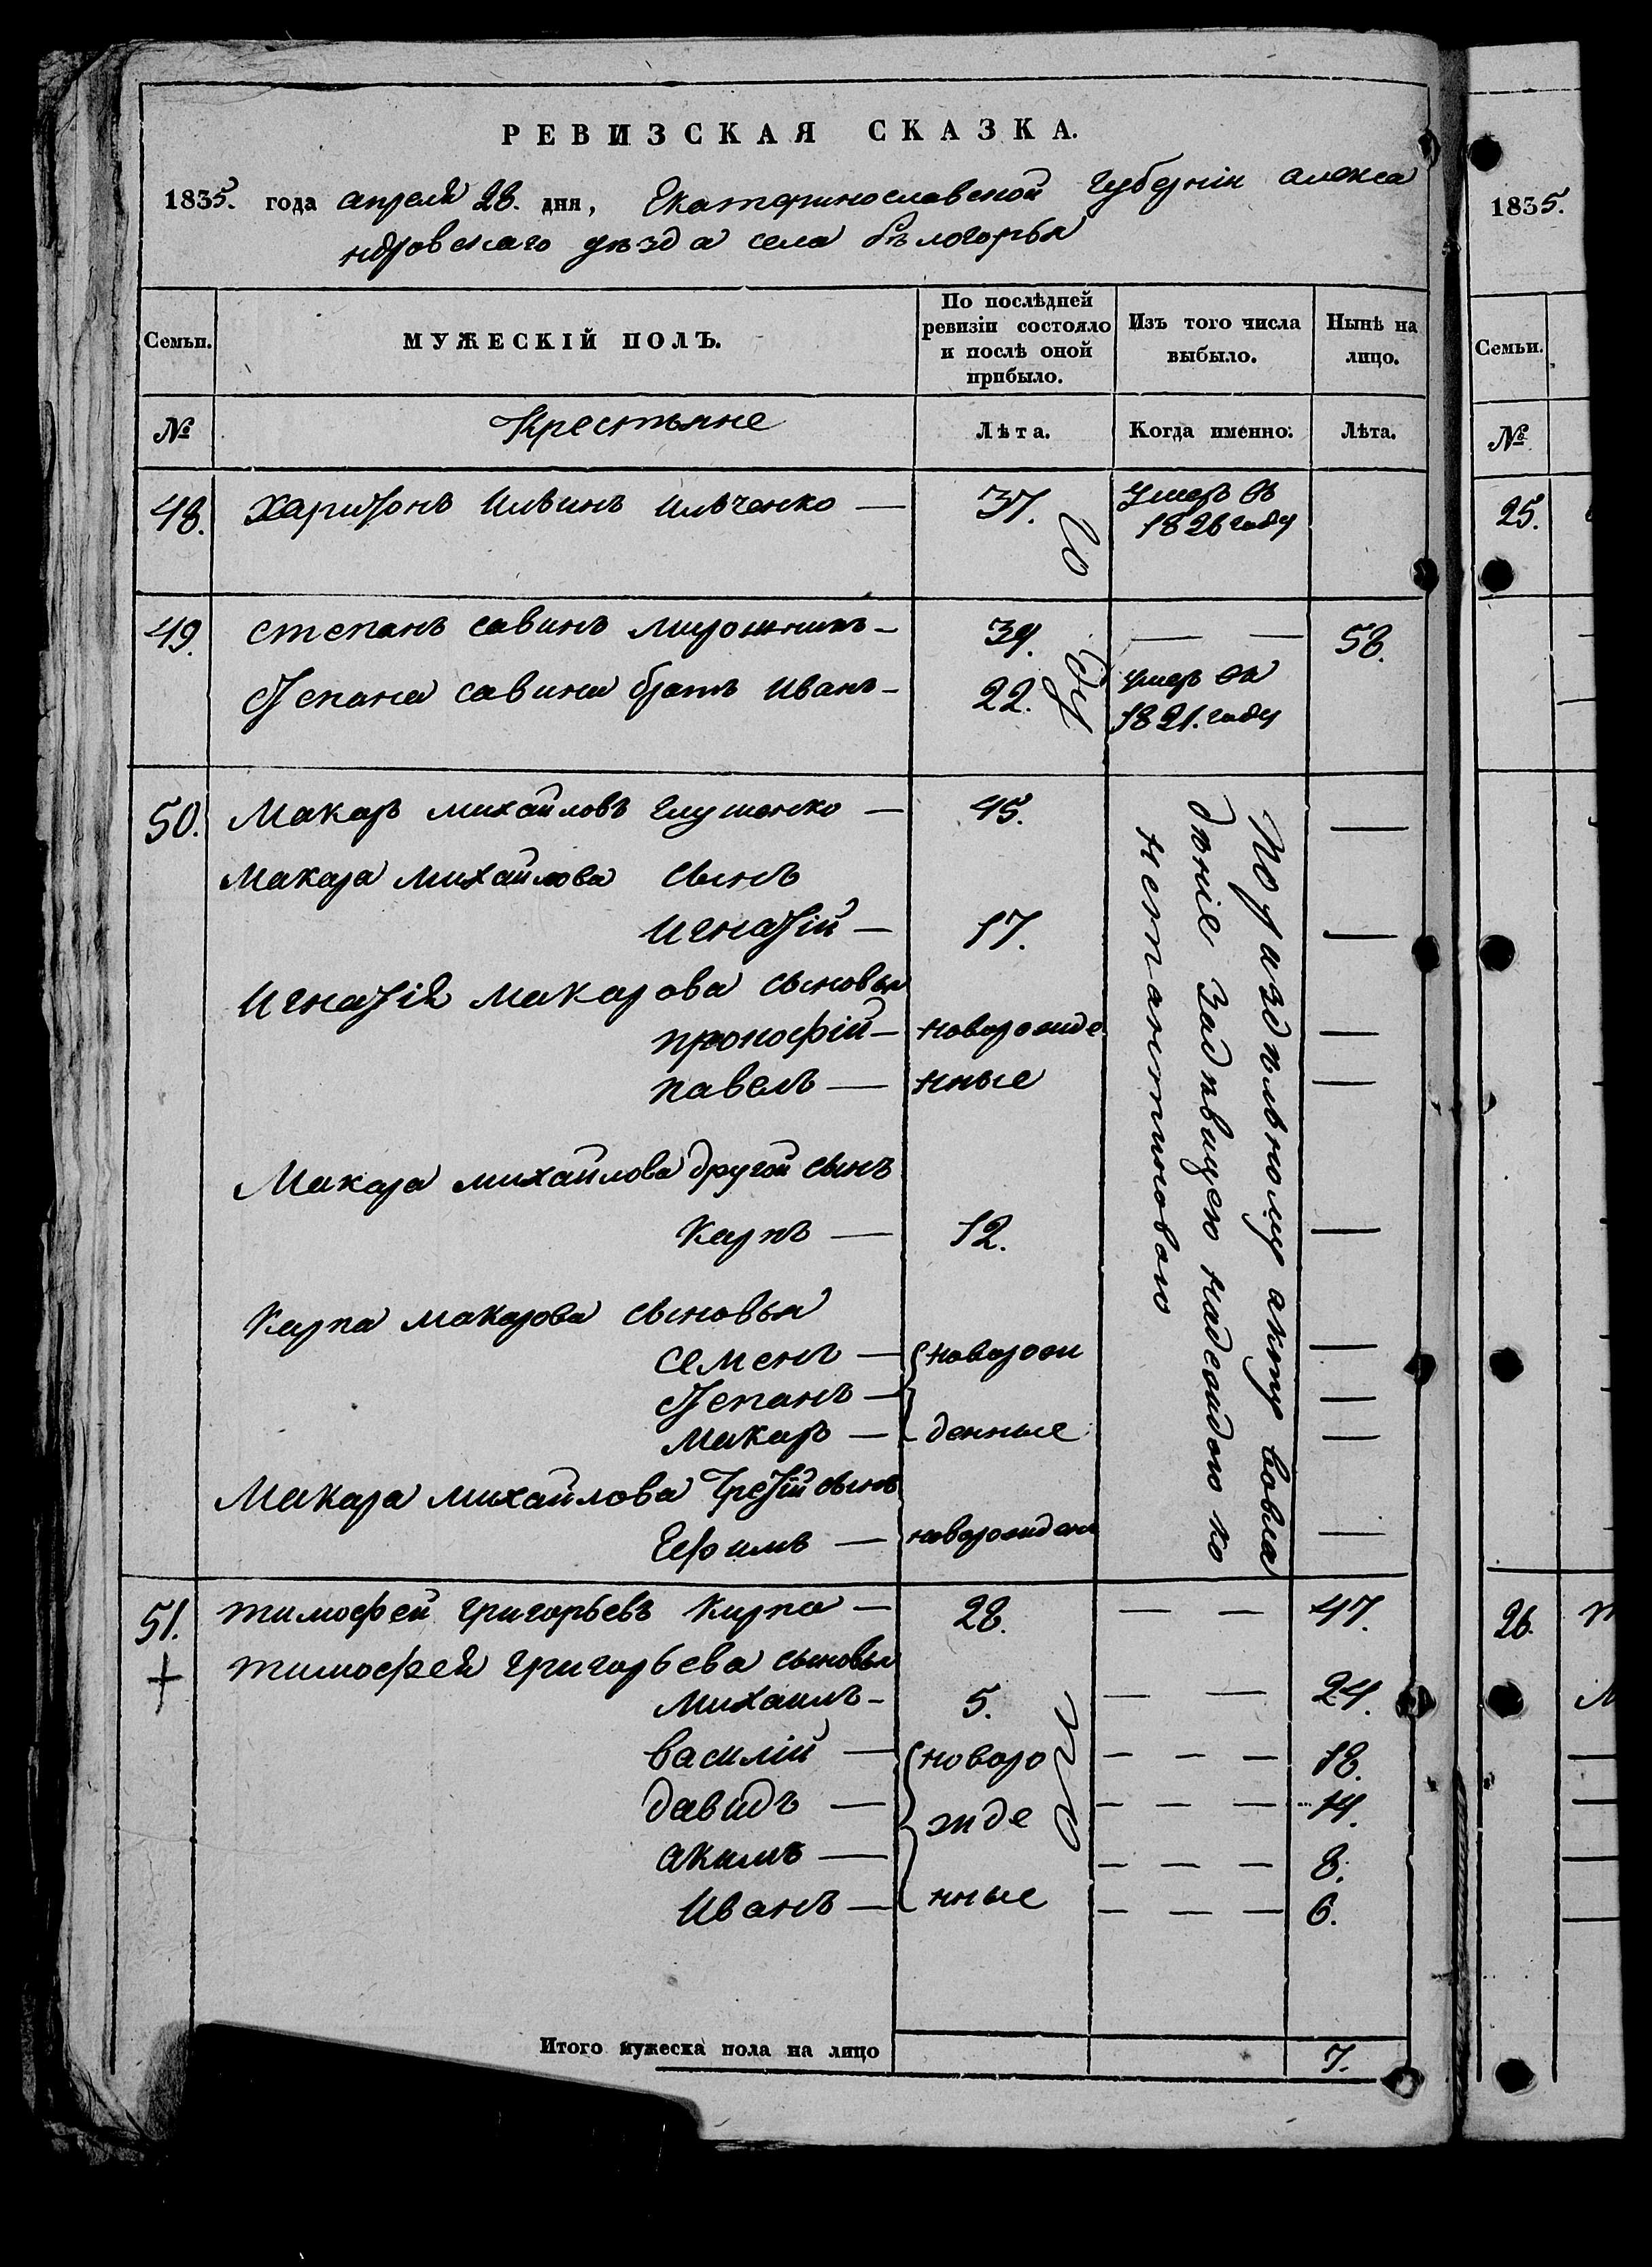 РЕВИЗСКАЯ СКАЗКА.
1835. года апреля 28. дня, Екатеринославской губерніи алекса
ндровскаго уѣзда села бѣлогорья
Семьи. МУЖЕСКІЙ ПОЛЪ. По послѣдней ревизіи состояло и послѣ оной прибыло. Изъ того числа выбыло. Нынѣ на лицо.
№ Крестьяне Лѣта. Когда именно. Лѣта.
48. Харитонъ Ильинъ Ильченко — 37. Умеръ въ 1826 году
49. степанъ савинъ мирошникъ — 39. — — 58.
Степана савина братъ Иванъ — 22. умеръ въ 1821. году
50. Макаръ михайловъ глушенко — 45. —
Макара михайлова сынъ
Игнатій — 17. —
Игнатія макарова сыновья
прокофій — новорожде —
павелъ — нные —
Макара михайлова другой сынъ
Карпъ — 12. —
Карпа макарова сыновья
семенъ — новорож —
Степанъ — —
макаръ — денные —
Макара михайлова третій сынъ
Ефимъ — новорожден —
По раздѣльному акту вовла
дѣніе Задѣвицею надсадою ко
нстантиновою
51. тимофей григорьевъ Кирпа — 28. — — 47.
тимофея григорьева сыновья
михаилъ — 5. — — 24.
василій — новоро — — — 18.
давидъ — жде — — — 14.
акимъ — — — — 8.
Иванъ — нные — — — 6.
Итого мужеска пола на лицо 7.
1835.
Семьи.
№
25.
26.